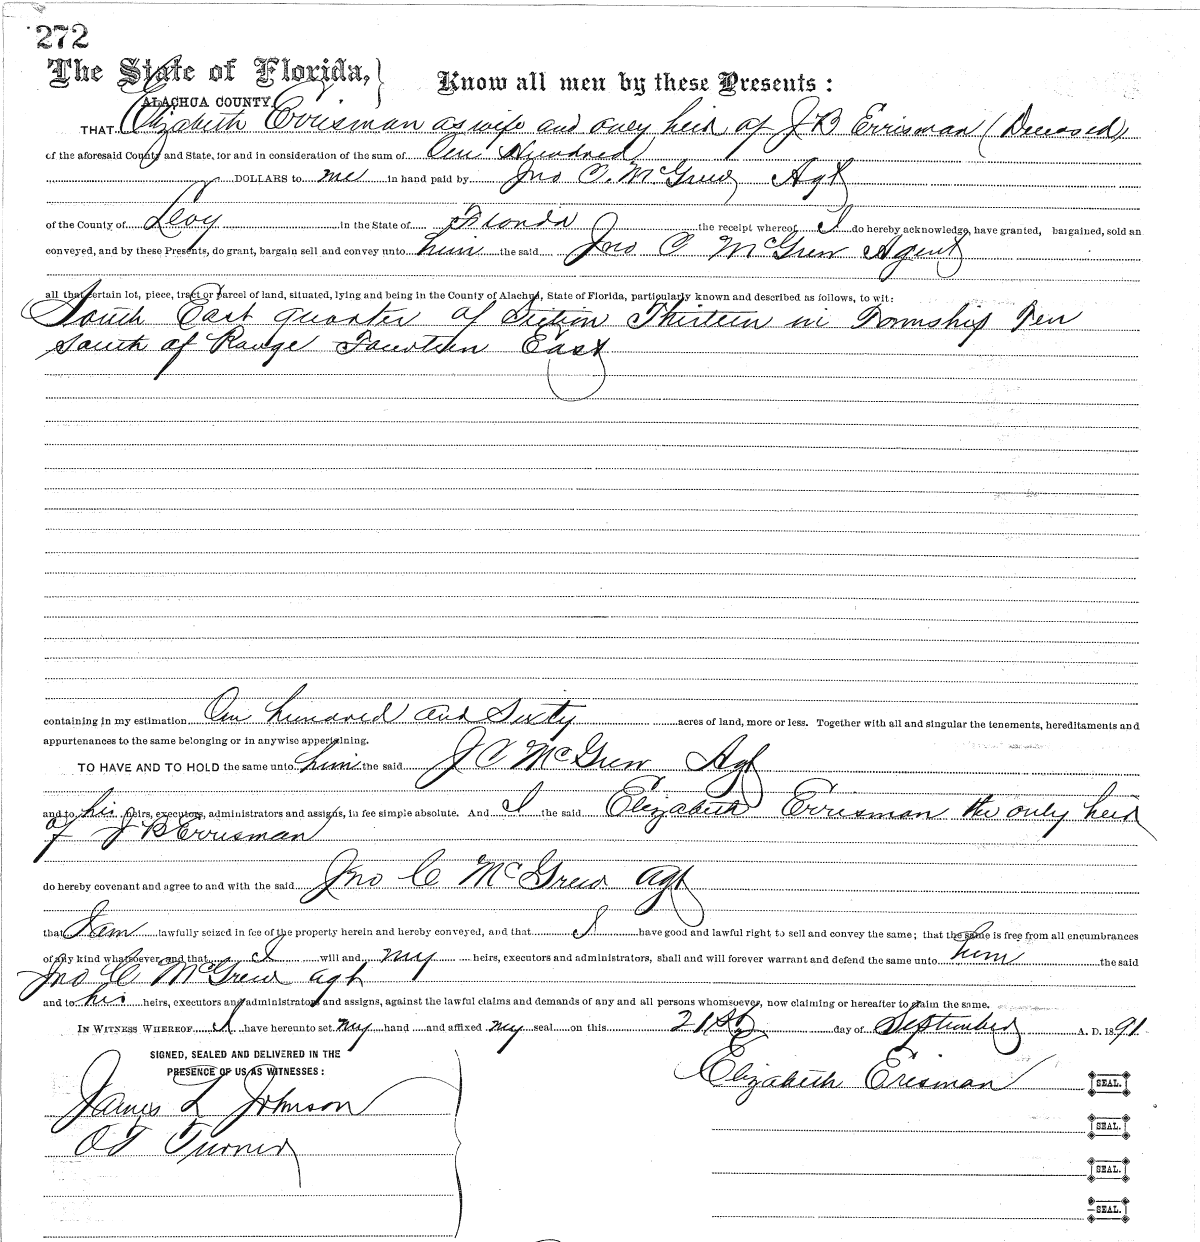 272
The State of Florida,
ALACHUA COUNTY.
Know all men by these Presents:
THAT Elizabeth Errisman as wife and only heir of J B Errisman (Deceased)
of the aforesaid County and State, for and in consideration of the sum of One Hundred
DOLLARS to me in hand paid by Jno C. McGrew Agt
of the County of Levy in the State of Florida the receipt whereof I do hereby acknowledge, have granted, bargained, sold an
conveyed, and by these Presents, do grant, bargain sell and convey unto him the said Jno C McGrew Agent
all that certain lot, piece, tract or parcel of land, situated, lying and being in the County of Alachua, State of Florida, particularly known and described as follows, to wit:
South East quarter of Section Thirteen in Township Ten
South of Range Fourteen East
containing in my estimation One hundred and Sixty acres of land, more or less. Together with all and singular the tenements, hereditaments and
appurtenances to the same belonging or in anywise appertaining.
TO HAVE AND TO HOLD the same unto him the said J C McGrew Agt
and to his heirs, executors, administrators and assigns, in fee simple absolute. And I the said Elizabeth Errisman the only heir
of J B Errisman
do hereby covenant and agree to and with the said Jno C McGrew agt
that I am lawfully seized in fee of the property herein and hereby conveyed, and that I have good and lawful right to sell and convey the same; that the same is free from all encumbrances
of any kind whatsoever and that I will and my heirs, executors and administrators, shall and will forever warrant and defend the same unto him the said
Jno C McGrew agt
and to his heirs, executors and administrators and assigns, against the lawful claims and demands of any and all persons whomsoever, now claiming or hereafter to claim the same.
IN WITNESS WHEREOF I have hereunto set my hand and affixed my seal on this 21st day of September A. D. 1891
SIGNED, SEALED AND DELIVERED IN THE
PRESENCE OF US AS WITNESSES:
Elizabeth Erisman SEAL.
James L Johnson
SEAL.
O T Turner
SEAL.
SEAL.